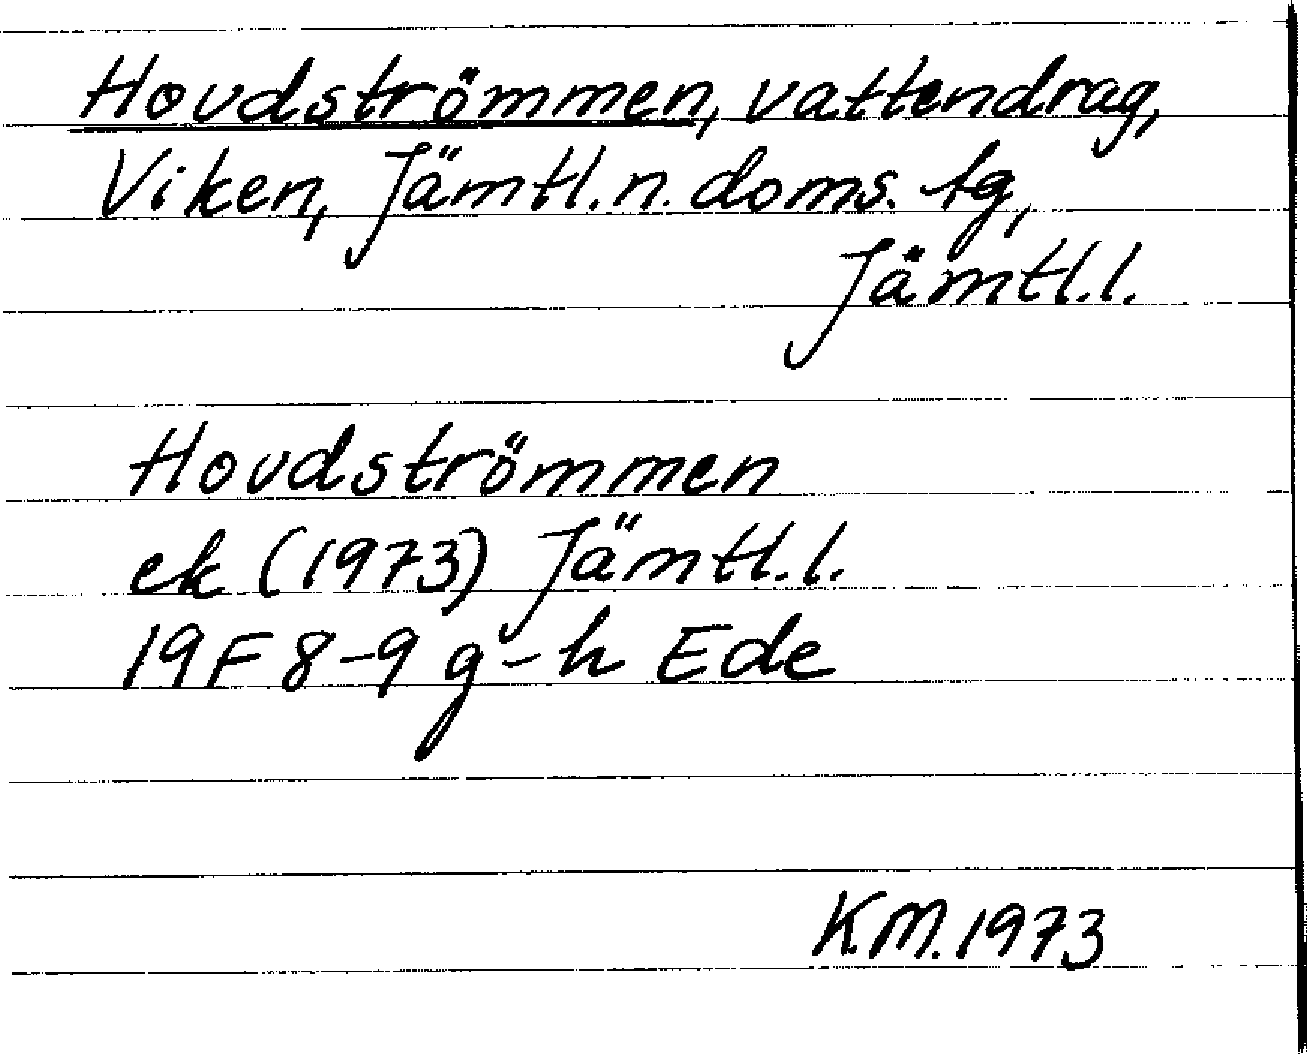 Hovdströmmen, vattendrag,
Viken, Jämtl.n.doms. tg,
Jämtl.l.
Hovdströmmen
ek (1973) Jämtl.l.
19F 8-9 g-h Ede
K.M.1973